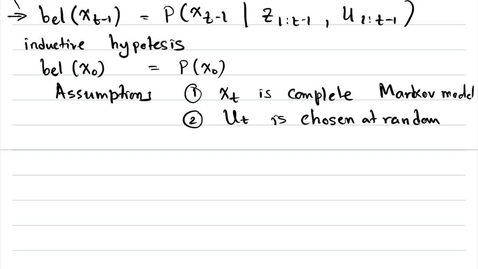 → bel(x_{t-1}) = P(x_{t-1} | z_{1:t-1}, u_{1:t-1})
inductive hypotesis
bel(x_0) = P(x_0)
Assumptions ① x_t is complete Markov model
② u_t is chosen at random